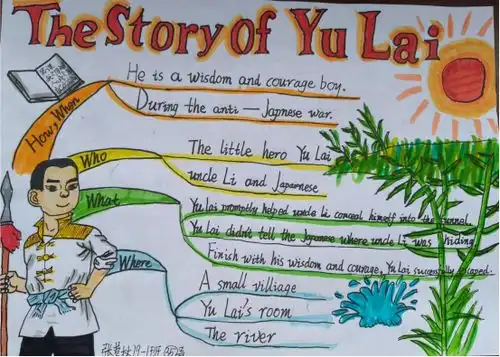 The Story Of Yu Lai
How, When
He is a wisdom and courage boy.
During the anti — Japnese war.
Who
The little hero Yu Lai
uncle Li and Japarnese
What
Yu Lai promptly helped uncle Li conceal himself into the tunnel
Yu Lai didn't tell the Japanese where uncle Li was hiding
Finish with his wisdom and courage, Yu Lai successfully escaped.
Where
A small villiage
Yu Lai's room
The river
19-1班